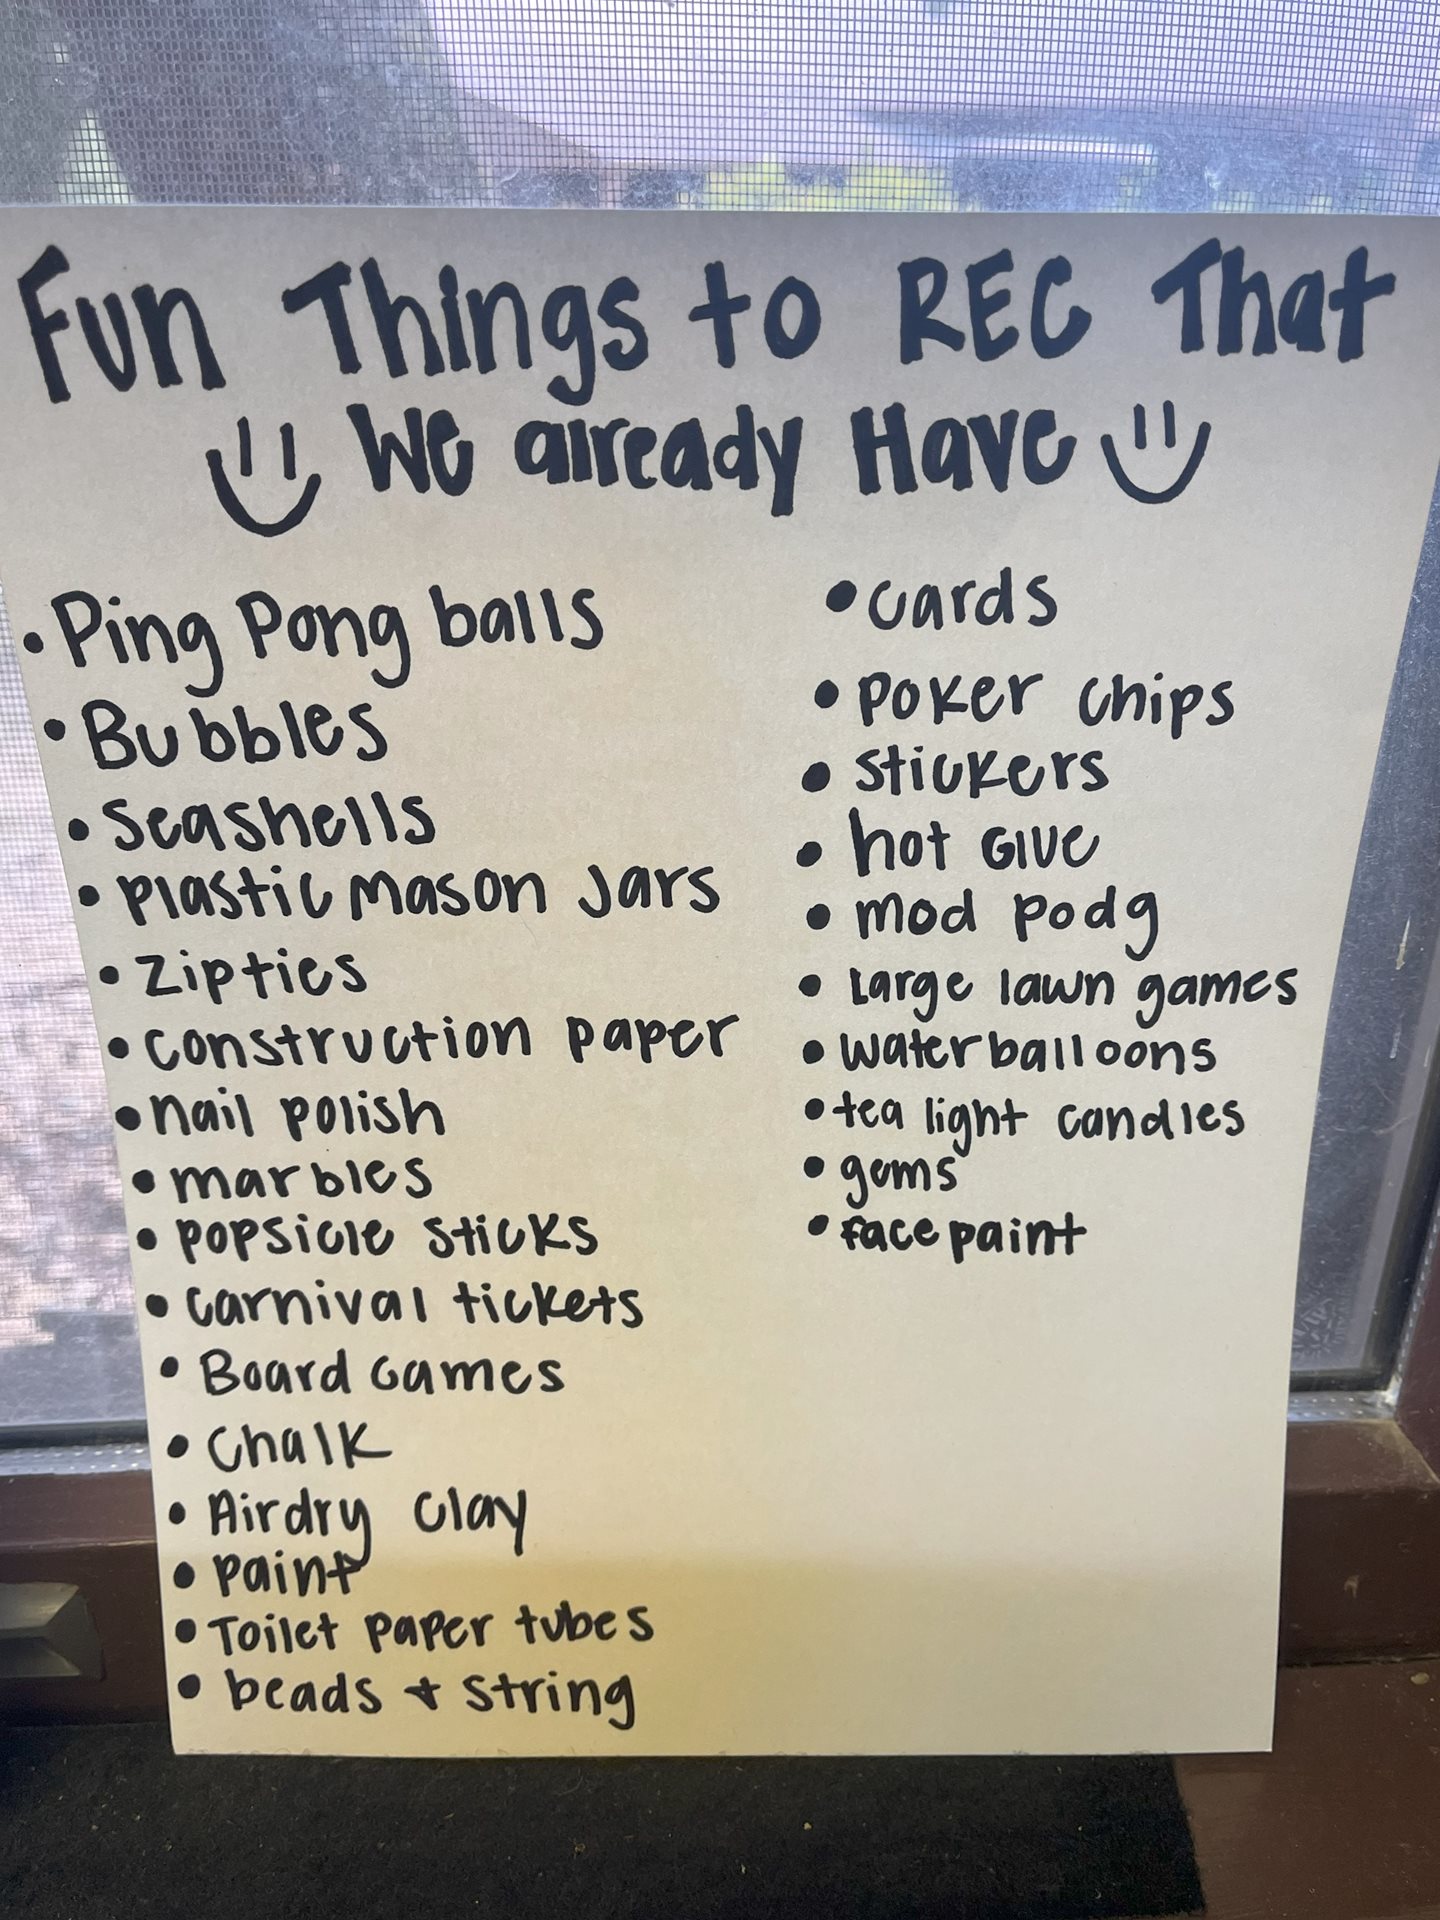 Fun Things to REC That
We already Have
• Ping Pong balls
• Bubbles
• Seashells
• Plastic Mason Jars
• Zipties
• construction paper
• nail polish
• marbles
• popsicle sticks
• carnival tickets
• Board Games
• Chalk
• Airdry clay
• paint
• Toilet paper tubes
• beads + string
• cards
• poker chips
• stickers
• hot Glue
• mod podg
• Large lawn games
• waterballoons
• tea light candles
• gems
• face paint